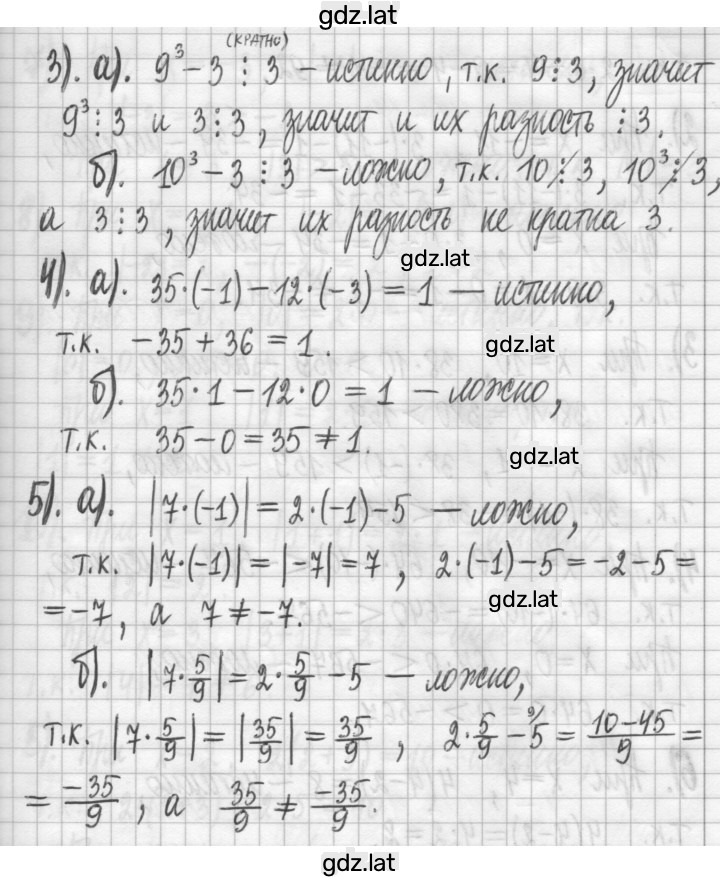 gdz.lat
(КРАТНО)
3). а). 9³ – 3 ⋮ 3 – истинно, т.к. 9⋮3, значит
9³⋮3 и 3⋮3, значит и их разность ⋮3.
б). 10³ – 3 ⋮ 3 – ложно, т.к. 10 ⋮̸ 3, 10³ ⋮̸ 3,
а 3⋮3, значит их разность не кратна 3.
gdz.lat
4). а). 35·(–1) – 12·(–3) = 1 – истинно,
т.к. –35 + 36 = 1.
gdz.lat
б). 35·1 – 12·0 = 1 – ложно,
т.к. 35 – 0 = 35 ≠ 1.
gdz.lat
5). а). |7·(–1)| = 2·(–1) – 5 – ложно,
т.к. |7·(–1)| = |–7| = 7, 2·(–1) – 5 = –2 – 5 =
gdz.lat
= –7, а 7 ≠ –7.
б). |7·5/9| = 2·5/9 – 5 – ложно,
т.к. |7·5/9| = |35/9| = 35/9, 2·5/9 – 5⁹⁾ = (10–45)/9 =
= –35/9, а 35/9 ≠ –35/9.
gdz.lat